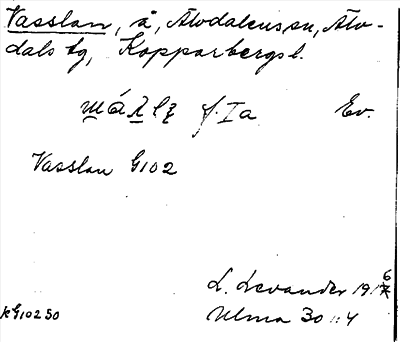 Vasslan, å, Älvdalens sn, Älv-
dals tg, Kopparbergs l.
f. Ia Ev.
Vasslan G102
L. Levander 1916
Ulma 30::4
KG10250